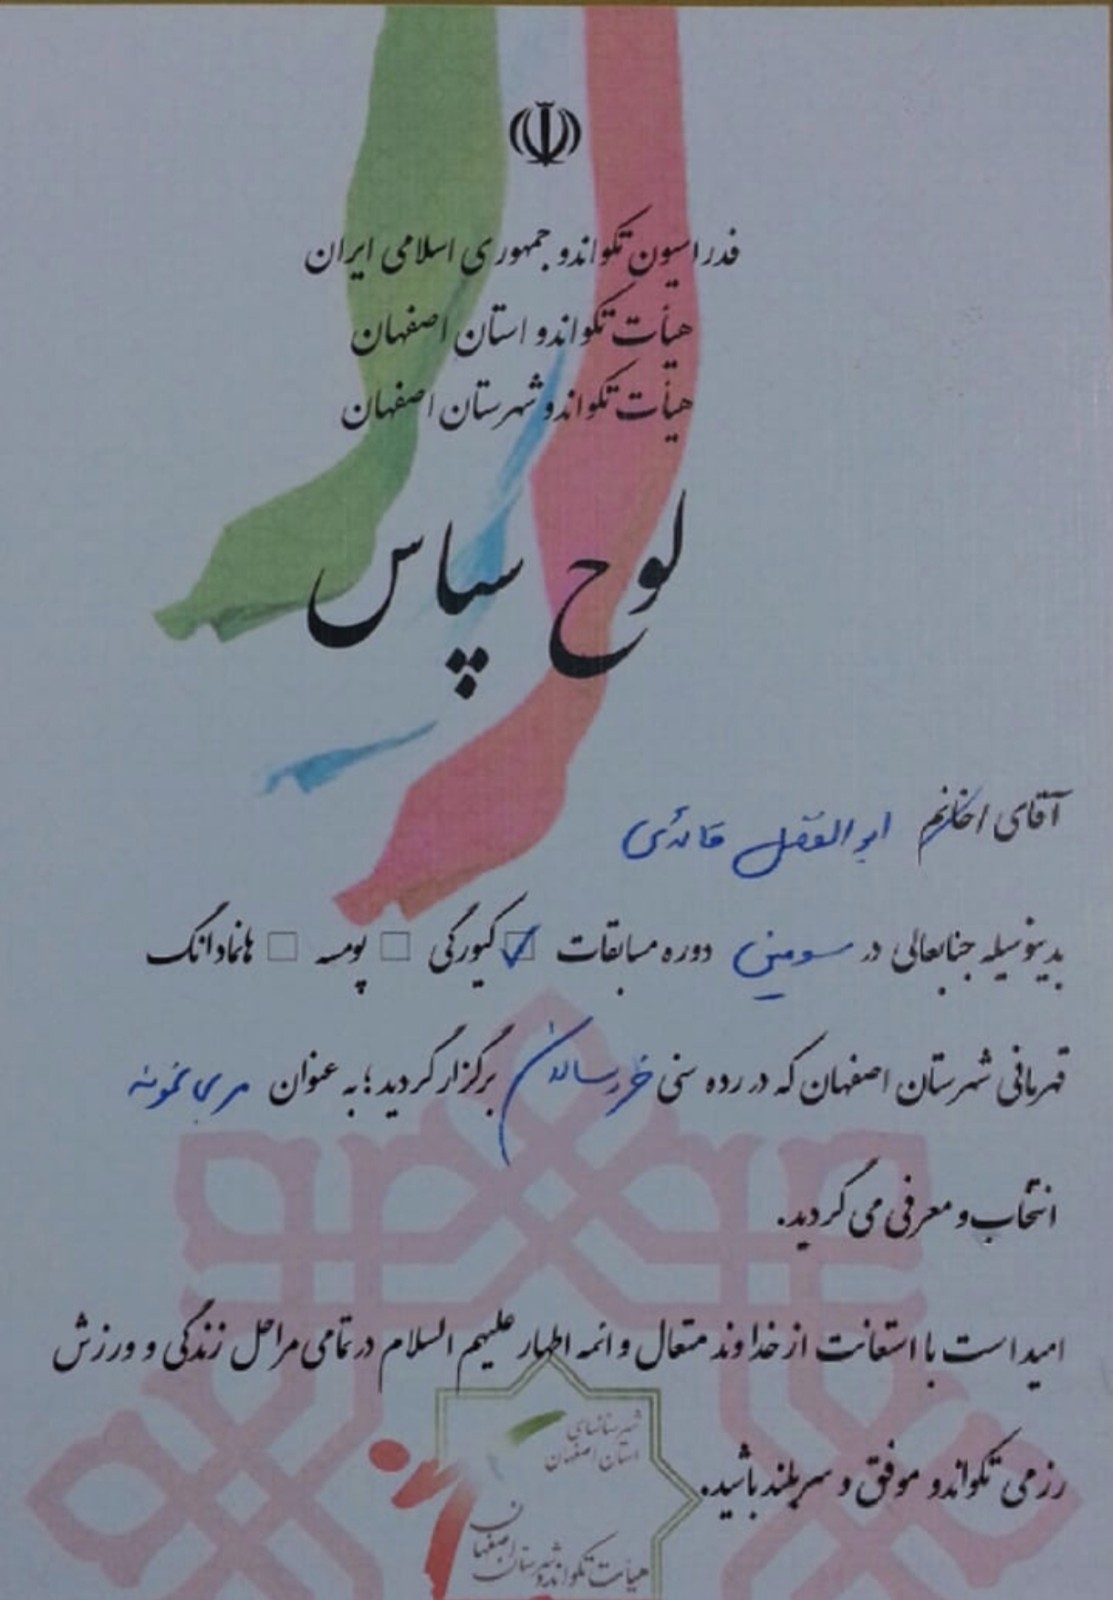 فدراسیون تکواندو جمهوری اسلامی ایران
هیأت تکواندو استان اصفهان
هیأت تکواندو شهرستان اصفهان
لوح سپاس
آقای / خانم ابوالفضل قائدی
بدینوسیله جنابعالی در سومین دوره مسابقات کیورگی پومسه هانمادانگ
قهرمانی شهرستان اصفهان که در رده سنی خردسالان برگزار گردید؛ به عنوان مربی نمونه
انتخاب و معرفی می گردید.
امید است با استعانت از خداوند متعال و ائمه اطهار علیهم السلام در تمامی مراحل زندگی و ورزش
رزمی تکواندو موفق و سربلند باشید.
شهرستانهای
استان اصفهان
هیأت تکواندو شهرستان اصفهان